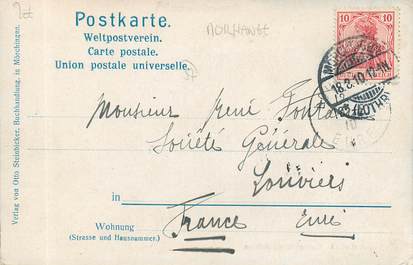 MORHANGE
Postkarte.
Weltpostverein.
Carte postale.
Union postale universelle.
10 10
18.3.10.12-1N.
(LOTHR)
Monsieur René
Société Générale
Louviers
in
France Eure
Wohnung
(Strasse und Hausnummer.)
Verlag von Otto Steinbicker, Buchhandlung, in Mörchingen.